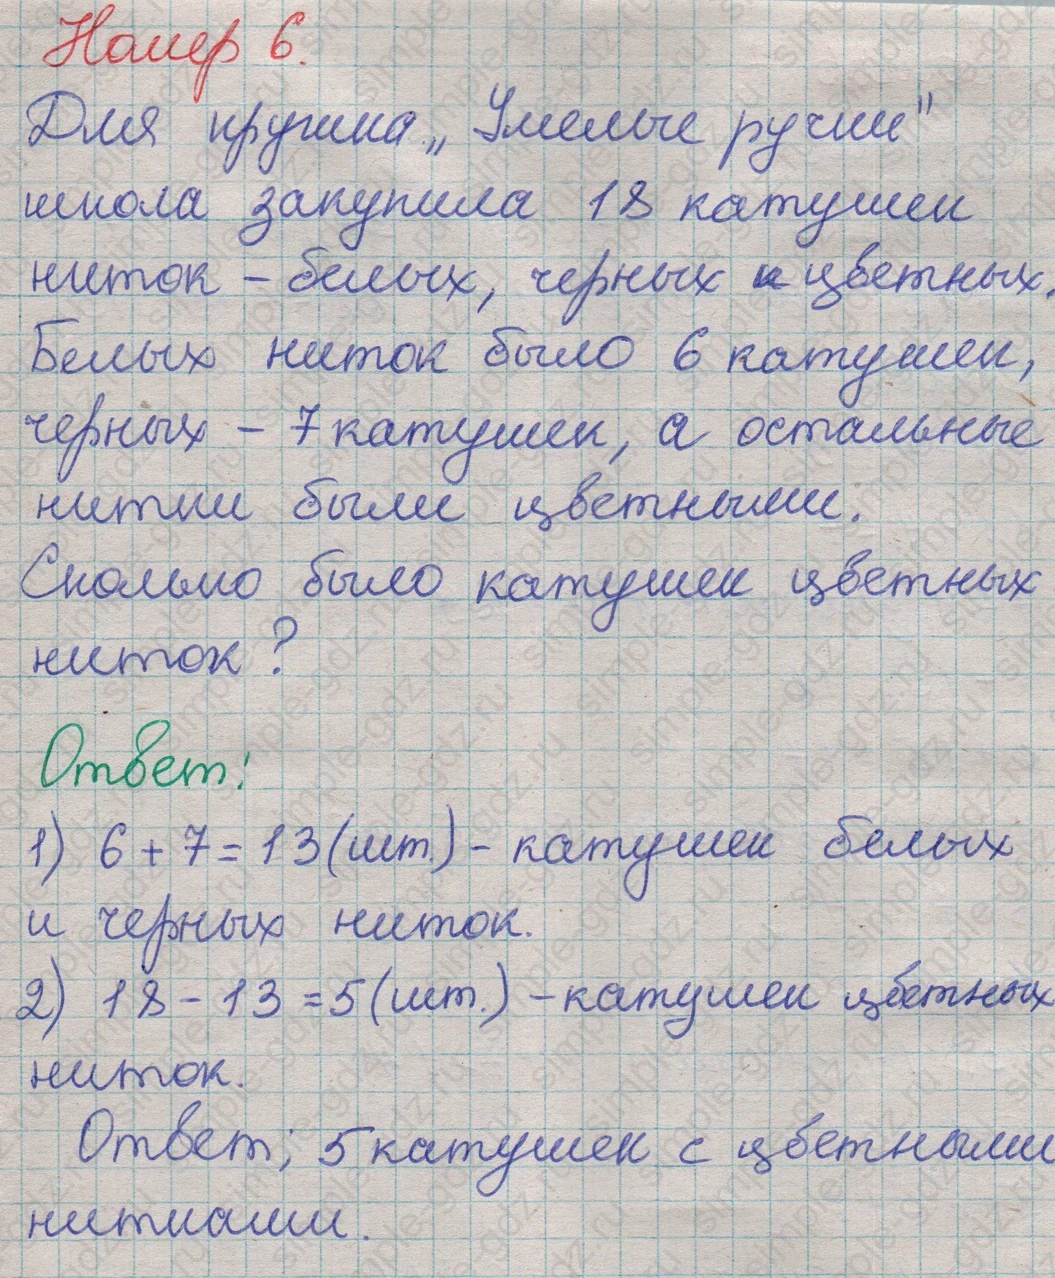 Номер 6.
Для кружка „Умелые ручки"
школа закупила 18 катушек
ниток – белых, черных и цветных.
Белых ниток было 6 катушек,
черных – 7 катушек, а остальные
нитки были цветными.
Сколько было катушек цветных
ниток?
Ответ:
1) 6 + 7 = 13 (шт.) – катушек белых
и черных ниток.
2) 18 – 13 = 5 (шт.) – катушек цветных
ниток.
Ответ; 5 катушек с цветными
нитками.
simple-gdz.ru